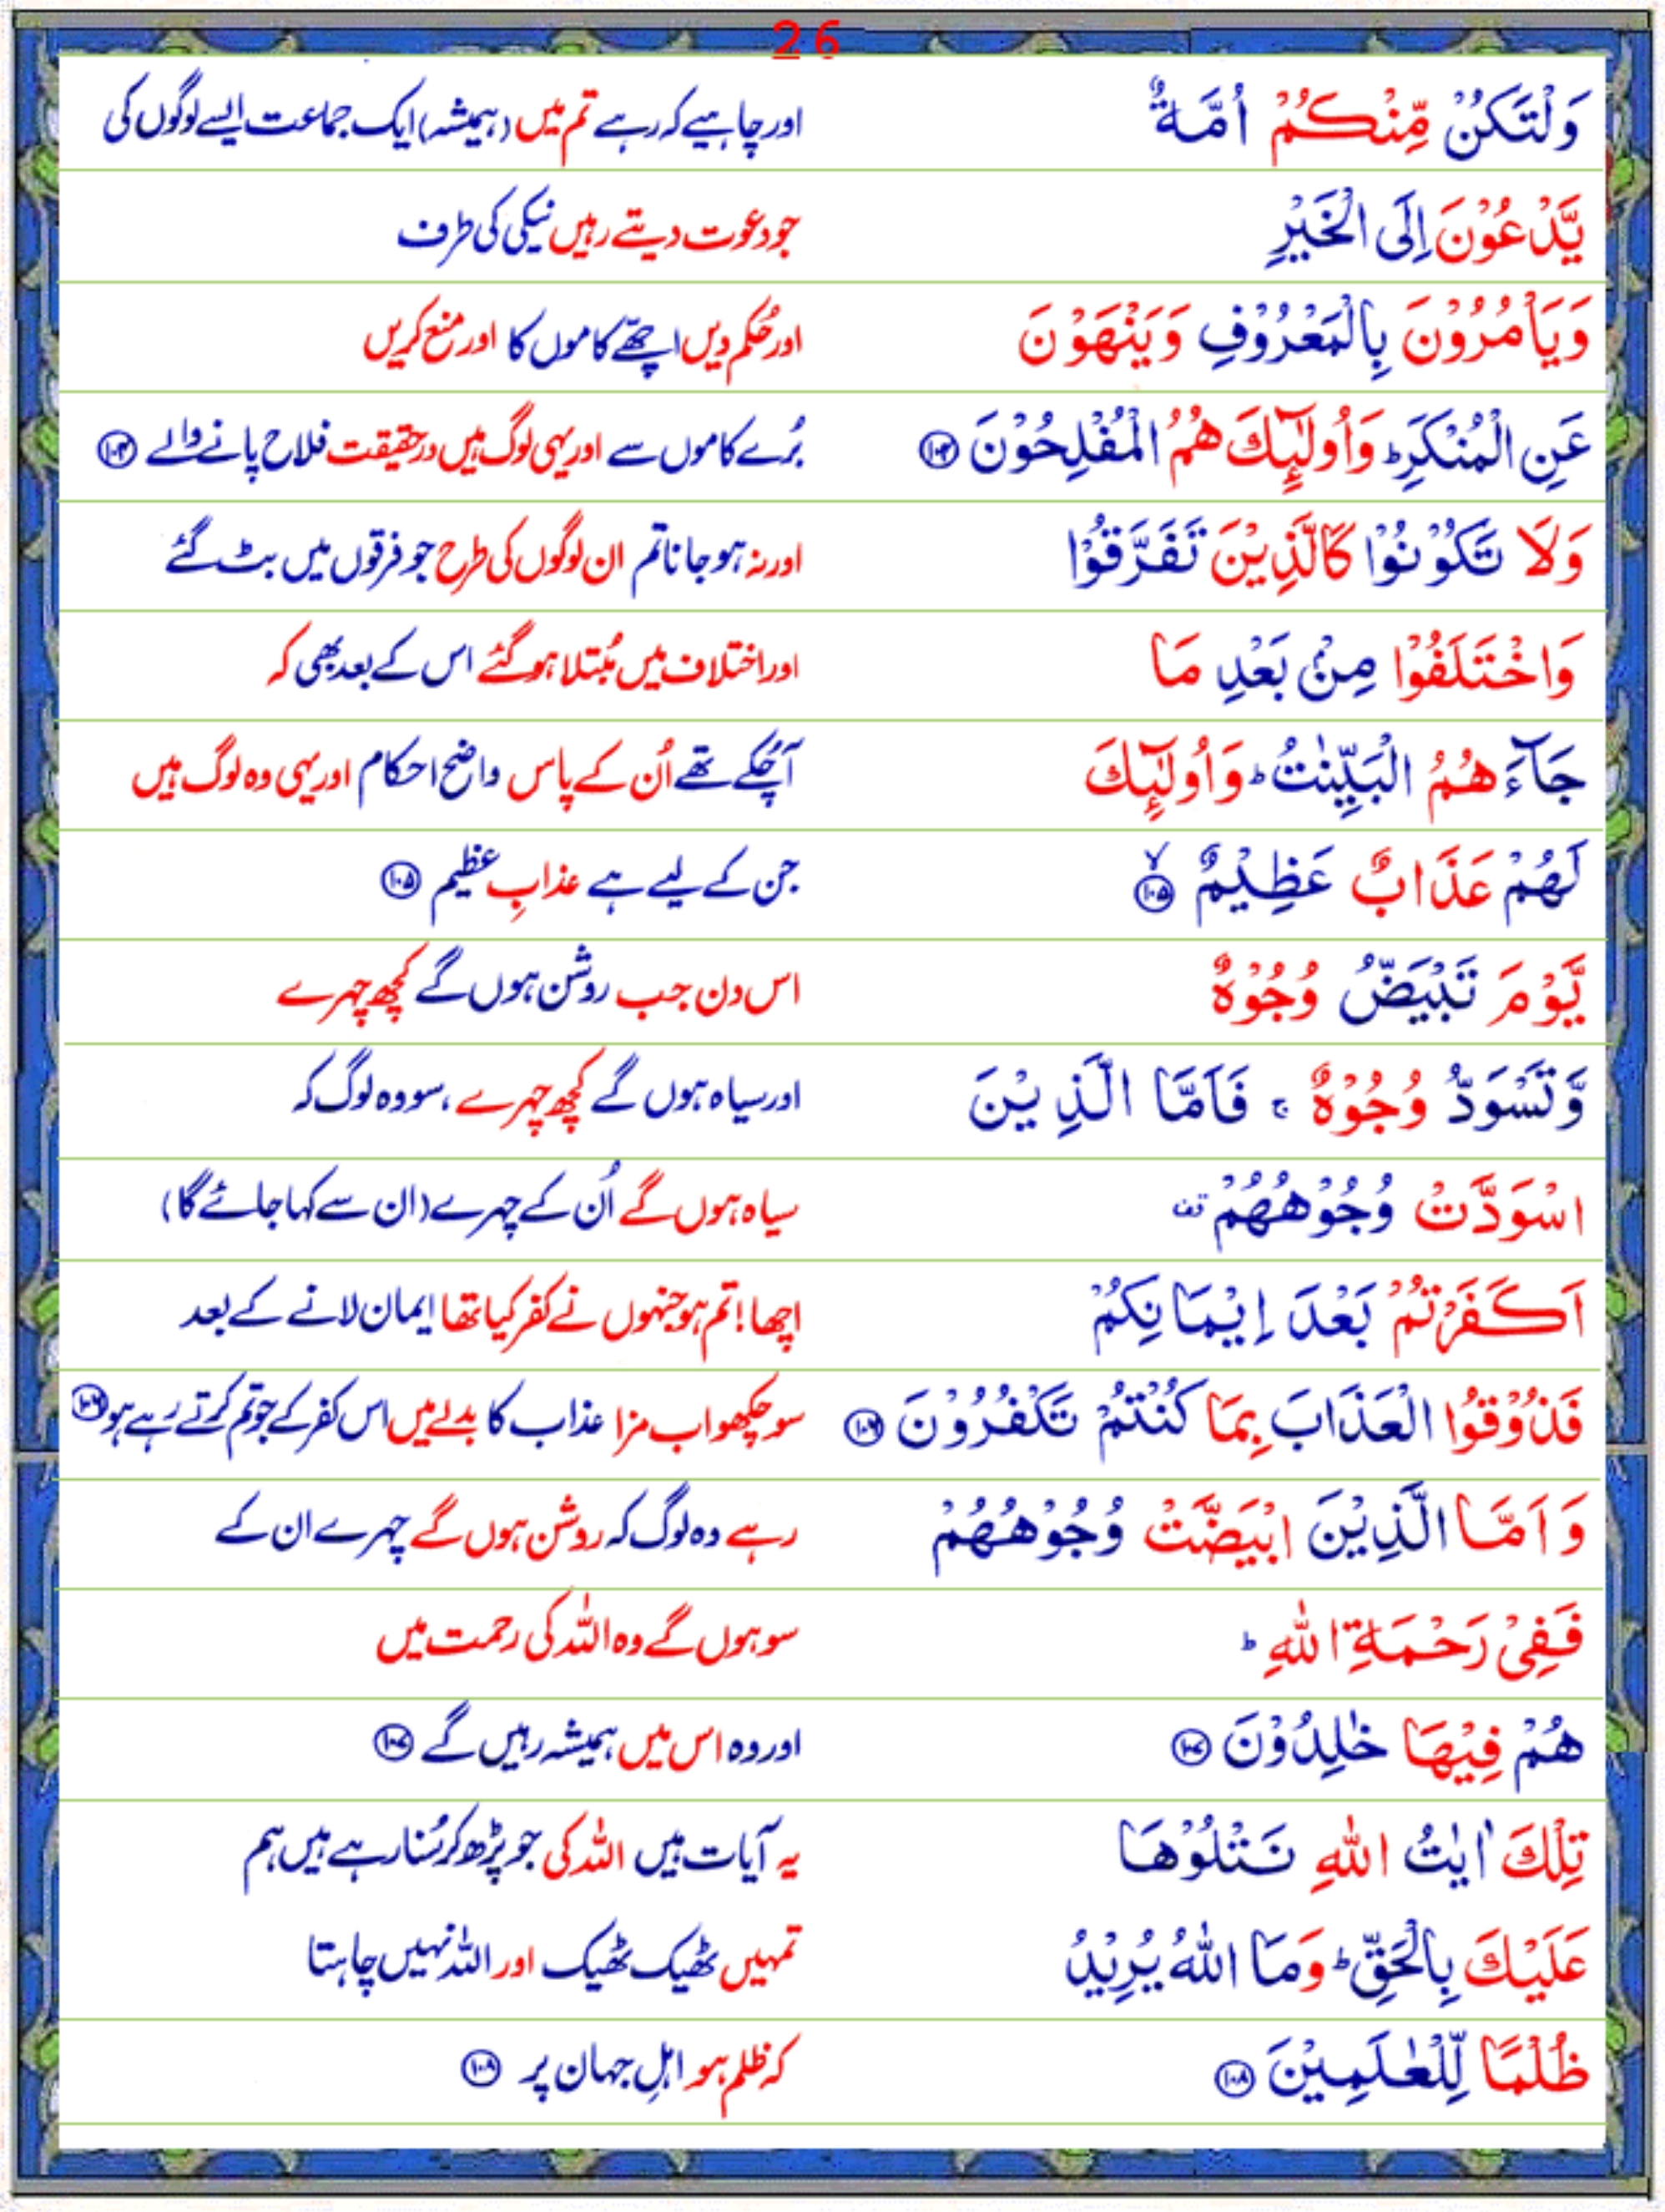 26
وَلْتَكُنْ مِّنْكُمْ اُمَّةٌ اور چاہیے کہ رہے تم میں (ہمیشہ) ایک جماعت ایسے لوگوں کی
يَّدْعُوْنَ اِلَى الْخَيْرِ جو دعوت دیتے رہیں نیکی کی طرف
وَيَاْمُرُوْنَ بِالْمَعْرُوْفِ وَيَنْهَوْنَ اور حُکم دیں اچھّے کاموں کا اور منع کریں
عَنِ الْمُنْكَرِ ؕ وَاُولٰٓئِكَ هُمُ الْمُفْلِحُوْنَ ۱۰۴ بُرے کاموں سے اور یہی لوگ ہیں درحقیقت فلاح پانے والے ۱۰۴
وَلَا تَكُوْنُوْا كَالَّذِيْنَ تَفَرَّقُوْا اور نہ ہو جانا تم ان لوگوں کی طرح جو فرقوں میں بٹ گئے
وَاخْتَلَفُوْا مِنْۢ بَعْدِ مَا اور اختلاف میں مُبتلا ہو گئے اس کے بعد بھی کہ
جَآءَهُمُ الْبَيِّنٰتُ ؕ وَاُولٰٓئِكَ آچُکے تھے اُن کے پاس واضح احکام اور یہی وہ لوگ ہیں
لَهُمْ عَذَابٌ عَظِيْمٌ ۙ ۱۰۵ جن کے لیے ہے عذابِ عظیم ۱۰۵
يَّوْمَ تَبْيَضُّ وُجُوْهٌ اس دن جب روشن ہوں گے کچھ چہرے
وَّتَسْوَدُّ وُجُوْهٌ ۚ فَاَمَّا الَّذِيْنَ اور سیاہ ہوں گے کچھ چہرے ، سو وہ لوگ کہ
اسْوَدَّتْ وُجُوْهُهُمْ قف سیاہ ہوں گے اُن کے چہرے (ان سے کہا جائے گا)
اَكَفَرْتُمْ بَعْدَ اِيْمَانِكُمْ اچھا! تم ہو جنہوں نے کفر کیا تھا ایمان لانے کے بعد
فَذُوْقُوا الْعَذَابَ بِمَا كُنْتُمْ تَكْفُرُوْنَ ۱۰۶ سو چکھو اب مزا عذاب کا بدلے میں اس کفر کے جو تم کرتے رہے ہو ۱۰۶
وَاَمَّا الَّذِيْنَ ابْيَضَّتْ وُجُوْهُهُمْ رہے وہ لوگ کہ روشن ہوں گے چہرے ان کے
فَفِيْ رَحْمَةِ اللّٰهِ ؕ سو ہوں گے وہ اللہ کی رحمت میں
هُمْ فِيْهَا خٰلِدُوْنَ ۱۰۷ اور وہ اس میں ہمیشہ رہیں گے ۱۰۷
تِلْكَ اٰيٰتُ اللّٰهِ نَتْلُوْهَا یہ آیات ہیں اللہ کی جو پڑھ کر سُنا رہے ہیں ہم
عَلَيْكَ بِالْحَقِّ ؕ وَمَا اللّٰهُ يُرِيْدُ تمہیں ٹھیک ٹھیک اور اللہ نہیں چاہتا
ظُلْمًا لِّلْعٰلَمِيْنَ ۱۰۸ کہ ظلم ہو اہلِ جہان پر ۱۰۸